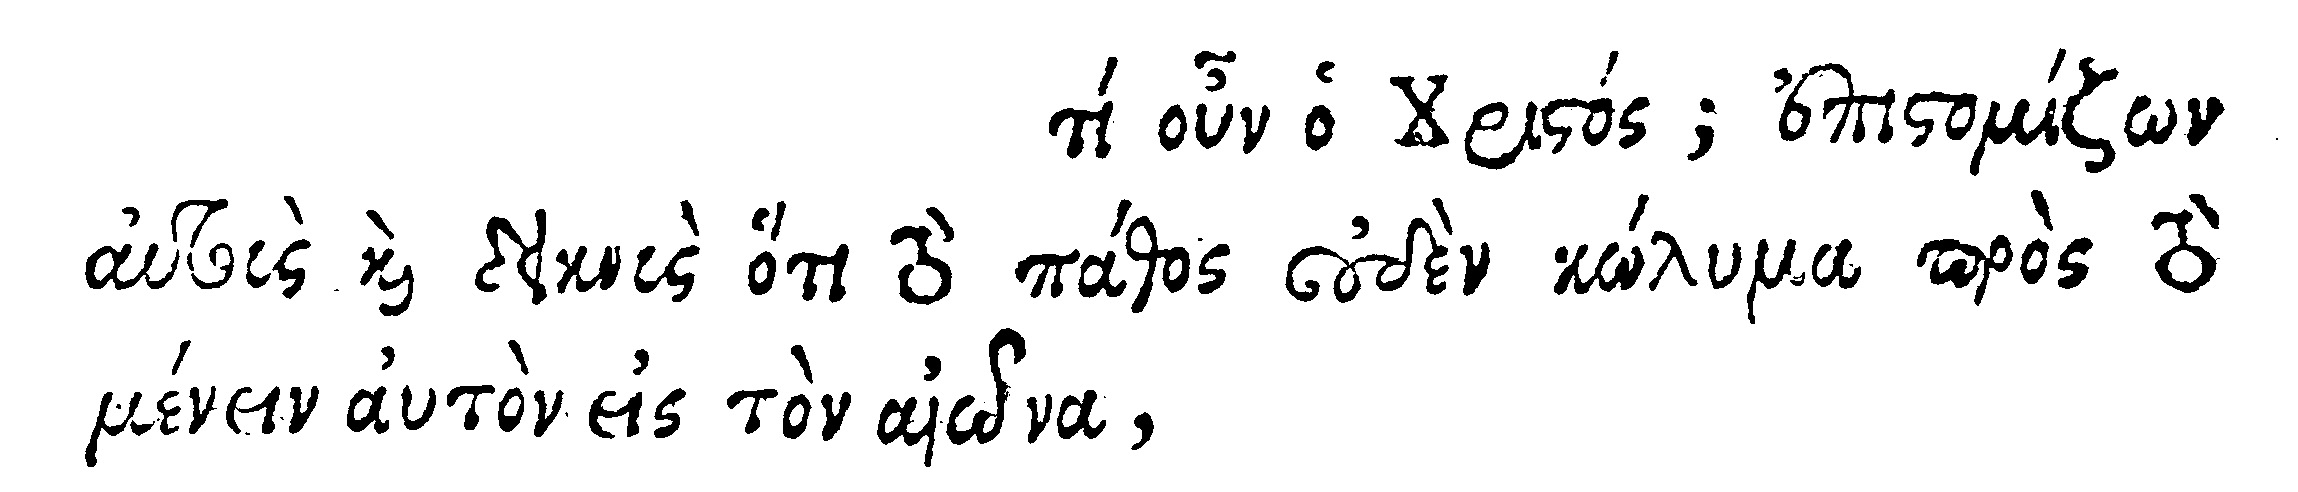 τί οὖν ὁ Χριστός; ἐπιστομίζων
αὐτοὺς καὶ δεικνὺς ὅτι τὸ πάθος οὐδὲν κώλυμα πρὸς τὸ
μένειν αὐτὸν εἰς τὸν αἰῶνα,